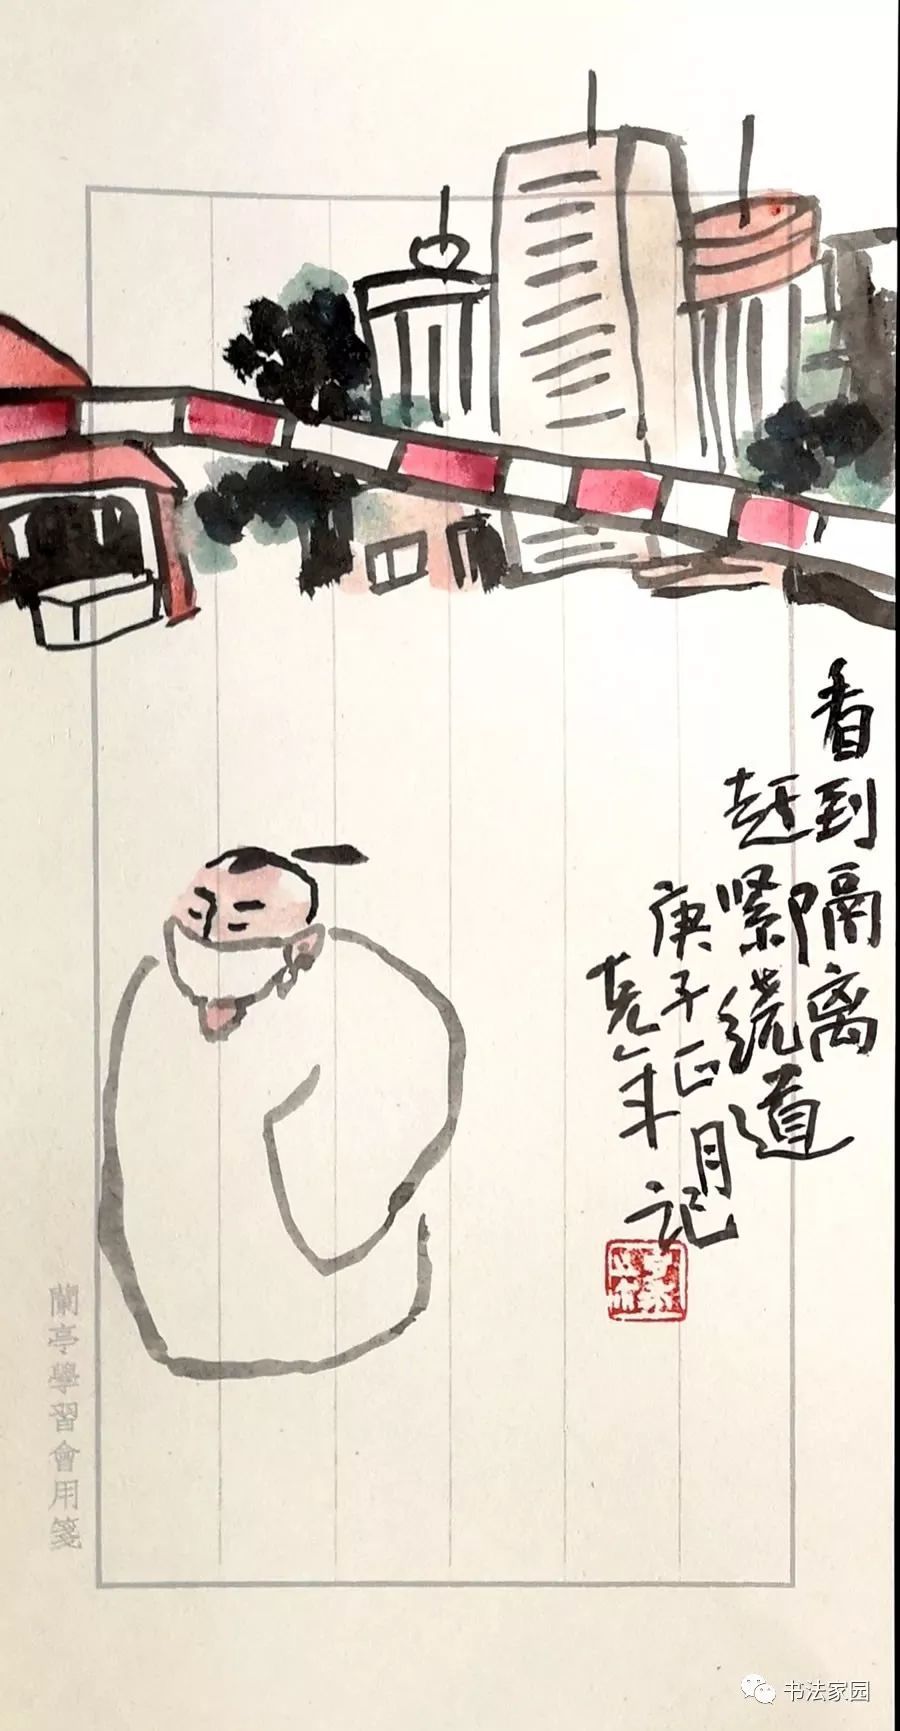 看到隔离
赶紧绕道
庚子正月
克年记
蘭亭學習會用箋
书法家园